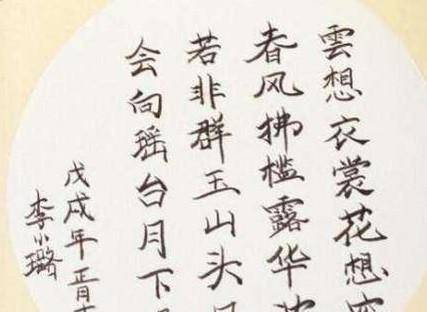 雲想衣裳花想
春风拂槛露华
若非群玉山头
会向瑶台月下
戊戌年正月
李小璐